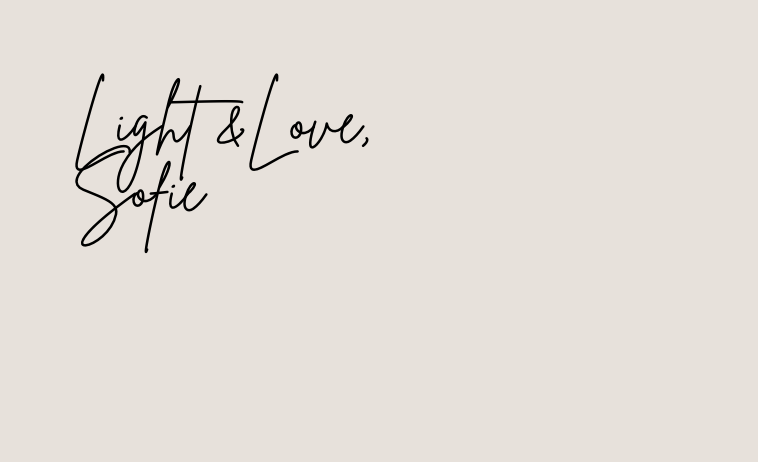 Light & Love,
Sofie